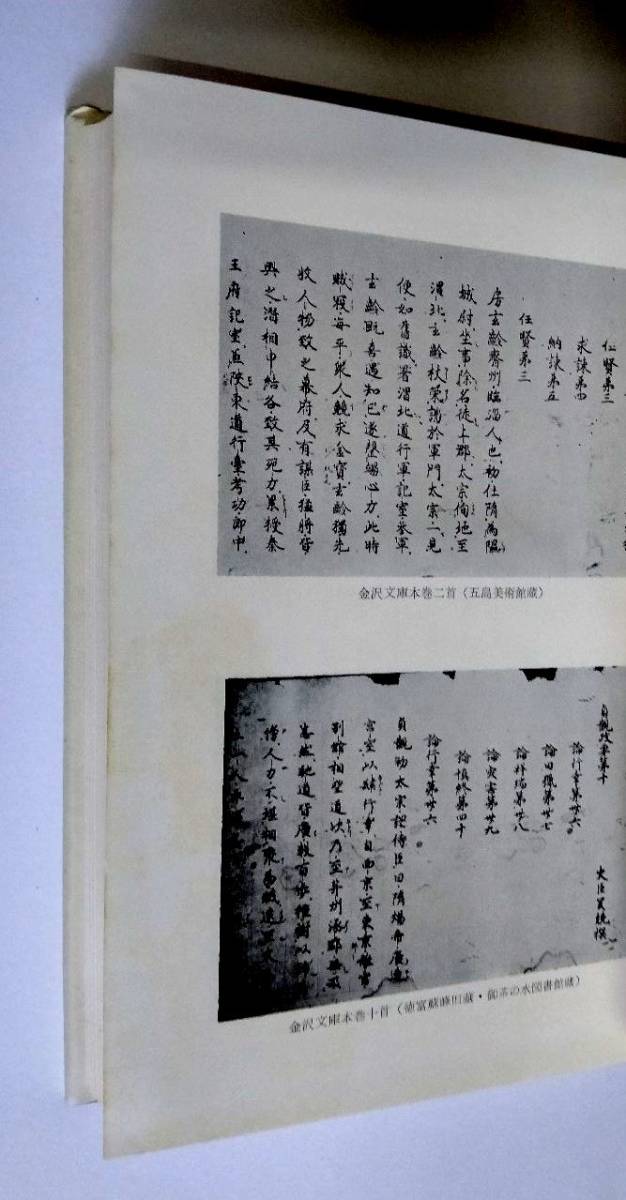 任賢第三
求諌第四
納諌第五
任賢第三
房玄齡齊州臨淄人也初仕隋為隰
城尉坐事除名徒上郡太宗徇地至
渭北玄齡杖策謁於軍門太宗一見
便如舊識署渭北道行軍記室參軍
玄齡既喜遇知己遂罄竭心力此時
賊寇每平眾人競求金寶玄齡獨先
收人物致之幕府及有謀臣猛將皆
與之潛相申結各致其死力累授秦
王府記室兼陝東道行臺考功郎中
金沢文庫本巻二首（五島美術館蔵）
貞觀政要第十
史臣吳兢撰
論行幸第卅六
論田獵第卅七
論祥瑞第卅八
論灾害第卅九
論慎終第四十
論行幸第卅六
貞觀初太宗謂侍臣曰隋煬帝廣造
宮室以肆行幸自西京至東京離宮
別館相望道次乃至并州涿郡無不
悉然馳道皆廣數百步種樹以飾其
傍人力不堪相聚為賊
金沢文庫本巻十首（徳富蘇峰旧蔵・御茶の水図書館蔵）